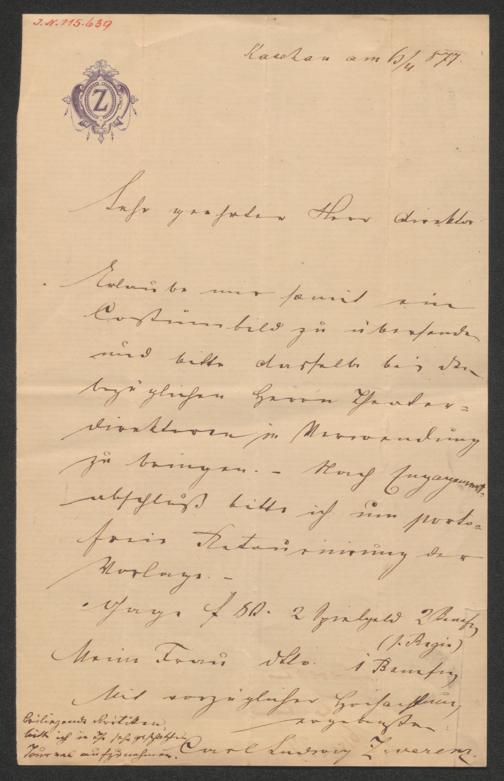 J.N. 115.639
Kaschau am 6/4 877.
Z
Sehr geehrter Herr Direktor
Erlaube mir somit ein
Costümbild zu übersenden
und bitte dasselbe bei den
bezüglichen Herrn Theater-
direktoren in Verwendung
zu bringen. – Nach Engagement-
abschluß bitte ich um porto-
freie Retournirung der
Vorlage. –
Gage f 2 Spielgeld 2 Benefiz
(f. Regie)
Meine Frau dtto. 1 Benefiz
Mit vorzüglicher Hochachtung
ergebenster
Carl Ludwig
Beiliegende Kritiken,
bitte ich in Ihr sehr geschätztes
Journal aufzunehmen.